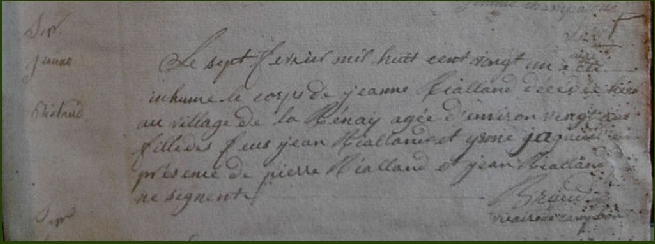 Sep.
jeanne
Rialand
Le sept fevrier mil huit cent vingt un a été
inhumé le corps de jeanne Rialland décédée hier
au village de la Benay agée d'environ vingt
fille des feus jean Rialland et
présence de pierre Rialland et jean Rialland
ne signent
vicaire de
Sep.